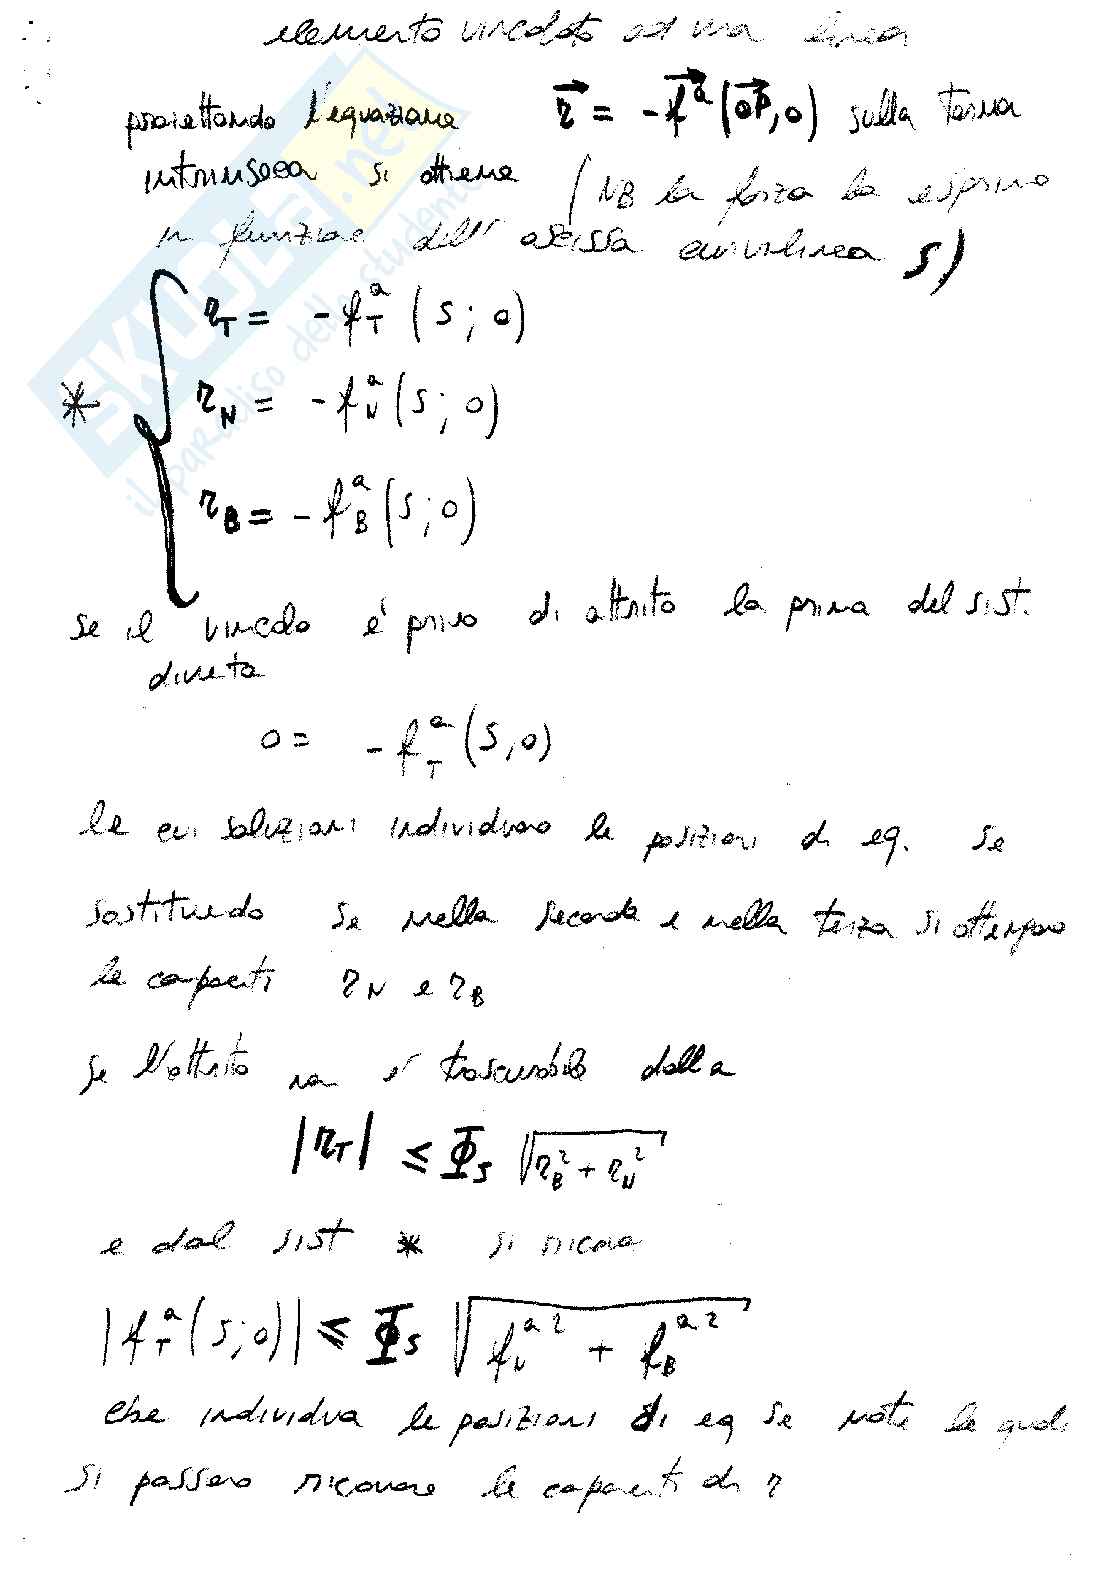 elemento vincolato ad una linea
proiettando l'equazione r⃗ = -f⃗ᵃ(OP⃗,0) sulla terna
intrinseca si ottiene (NB la forza la esprimo
in funzione dell' ascissa curvilinea s)
r_T = -f_T^a (s;0)
* r_N = -f_N^a (s;0)
r_B = -f_B^a (s;0)
se il vincolo è privo di attrito la prima del sist.
diventa
0 = -f_T^a (s,0)
le cui soluzioni individuano le posizioni di eq. se
sostituendo se nella seconda e nella terza si ottengono
le componenti r_N e r_B
se l'attrito non è trascurabile dalla
|r_T| ≤ Φ_s √(r_B² + r_N²)
e dal sist * si ricava
|f_T^a (s;0)| ≤ Φ_s √(f_N^a² + f_B^a²)
che individua le posizioni di eq se note le quali
si possono ricavare le componenti di r
SKUOLA.net
il paradiso dello studente